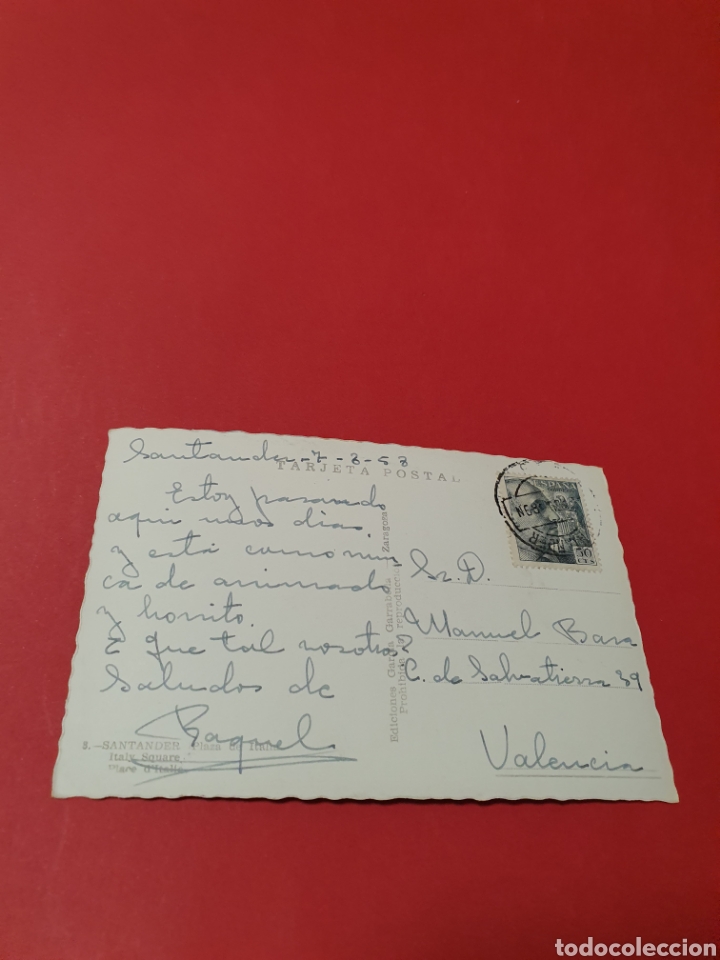 Santander-7-3-53
TARJETA POSTAL
Estoy pasando
aqui unos dias,
y está como nun
ca de animado
y bonito.
E que tal vosotros?
Saludos de
Raquel
8.-SANTANDER Plaza de Italia
Italy Square
Place d'Italie
Ediciones García Garrabella Zaragoza
Prohibida la reproducción
ESPAÑA
50
CTS
Sr. D.
Manuel Bara
C. de Salvatierra 39
Valencia
todocoleccion